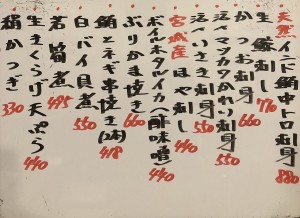 天然インド鮪中トロ刺身 880
生鯨刺し 770
かつお刺身 660
活〆マツカワかれい刺身
活〆いさき刺身 550
宮城産ほや刺し 440
ボイルホタルイカ(酢味噌) 440
ぶりかま焼き 660
鮪とネギ串焼き(2本) 418
白バイ貝煮 550
若筍煮 495
生きくらげ天ぷら 440
絹かつぎ 330